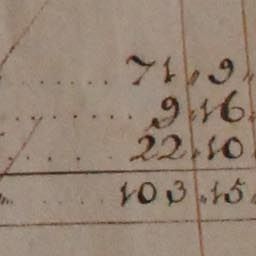 71 . 9 .
9 . 16 .
22 . 10 .
103 . 15 .